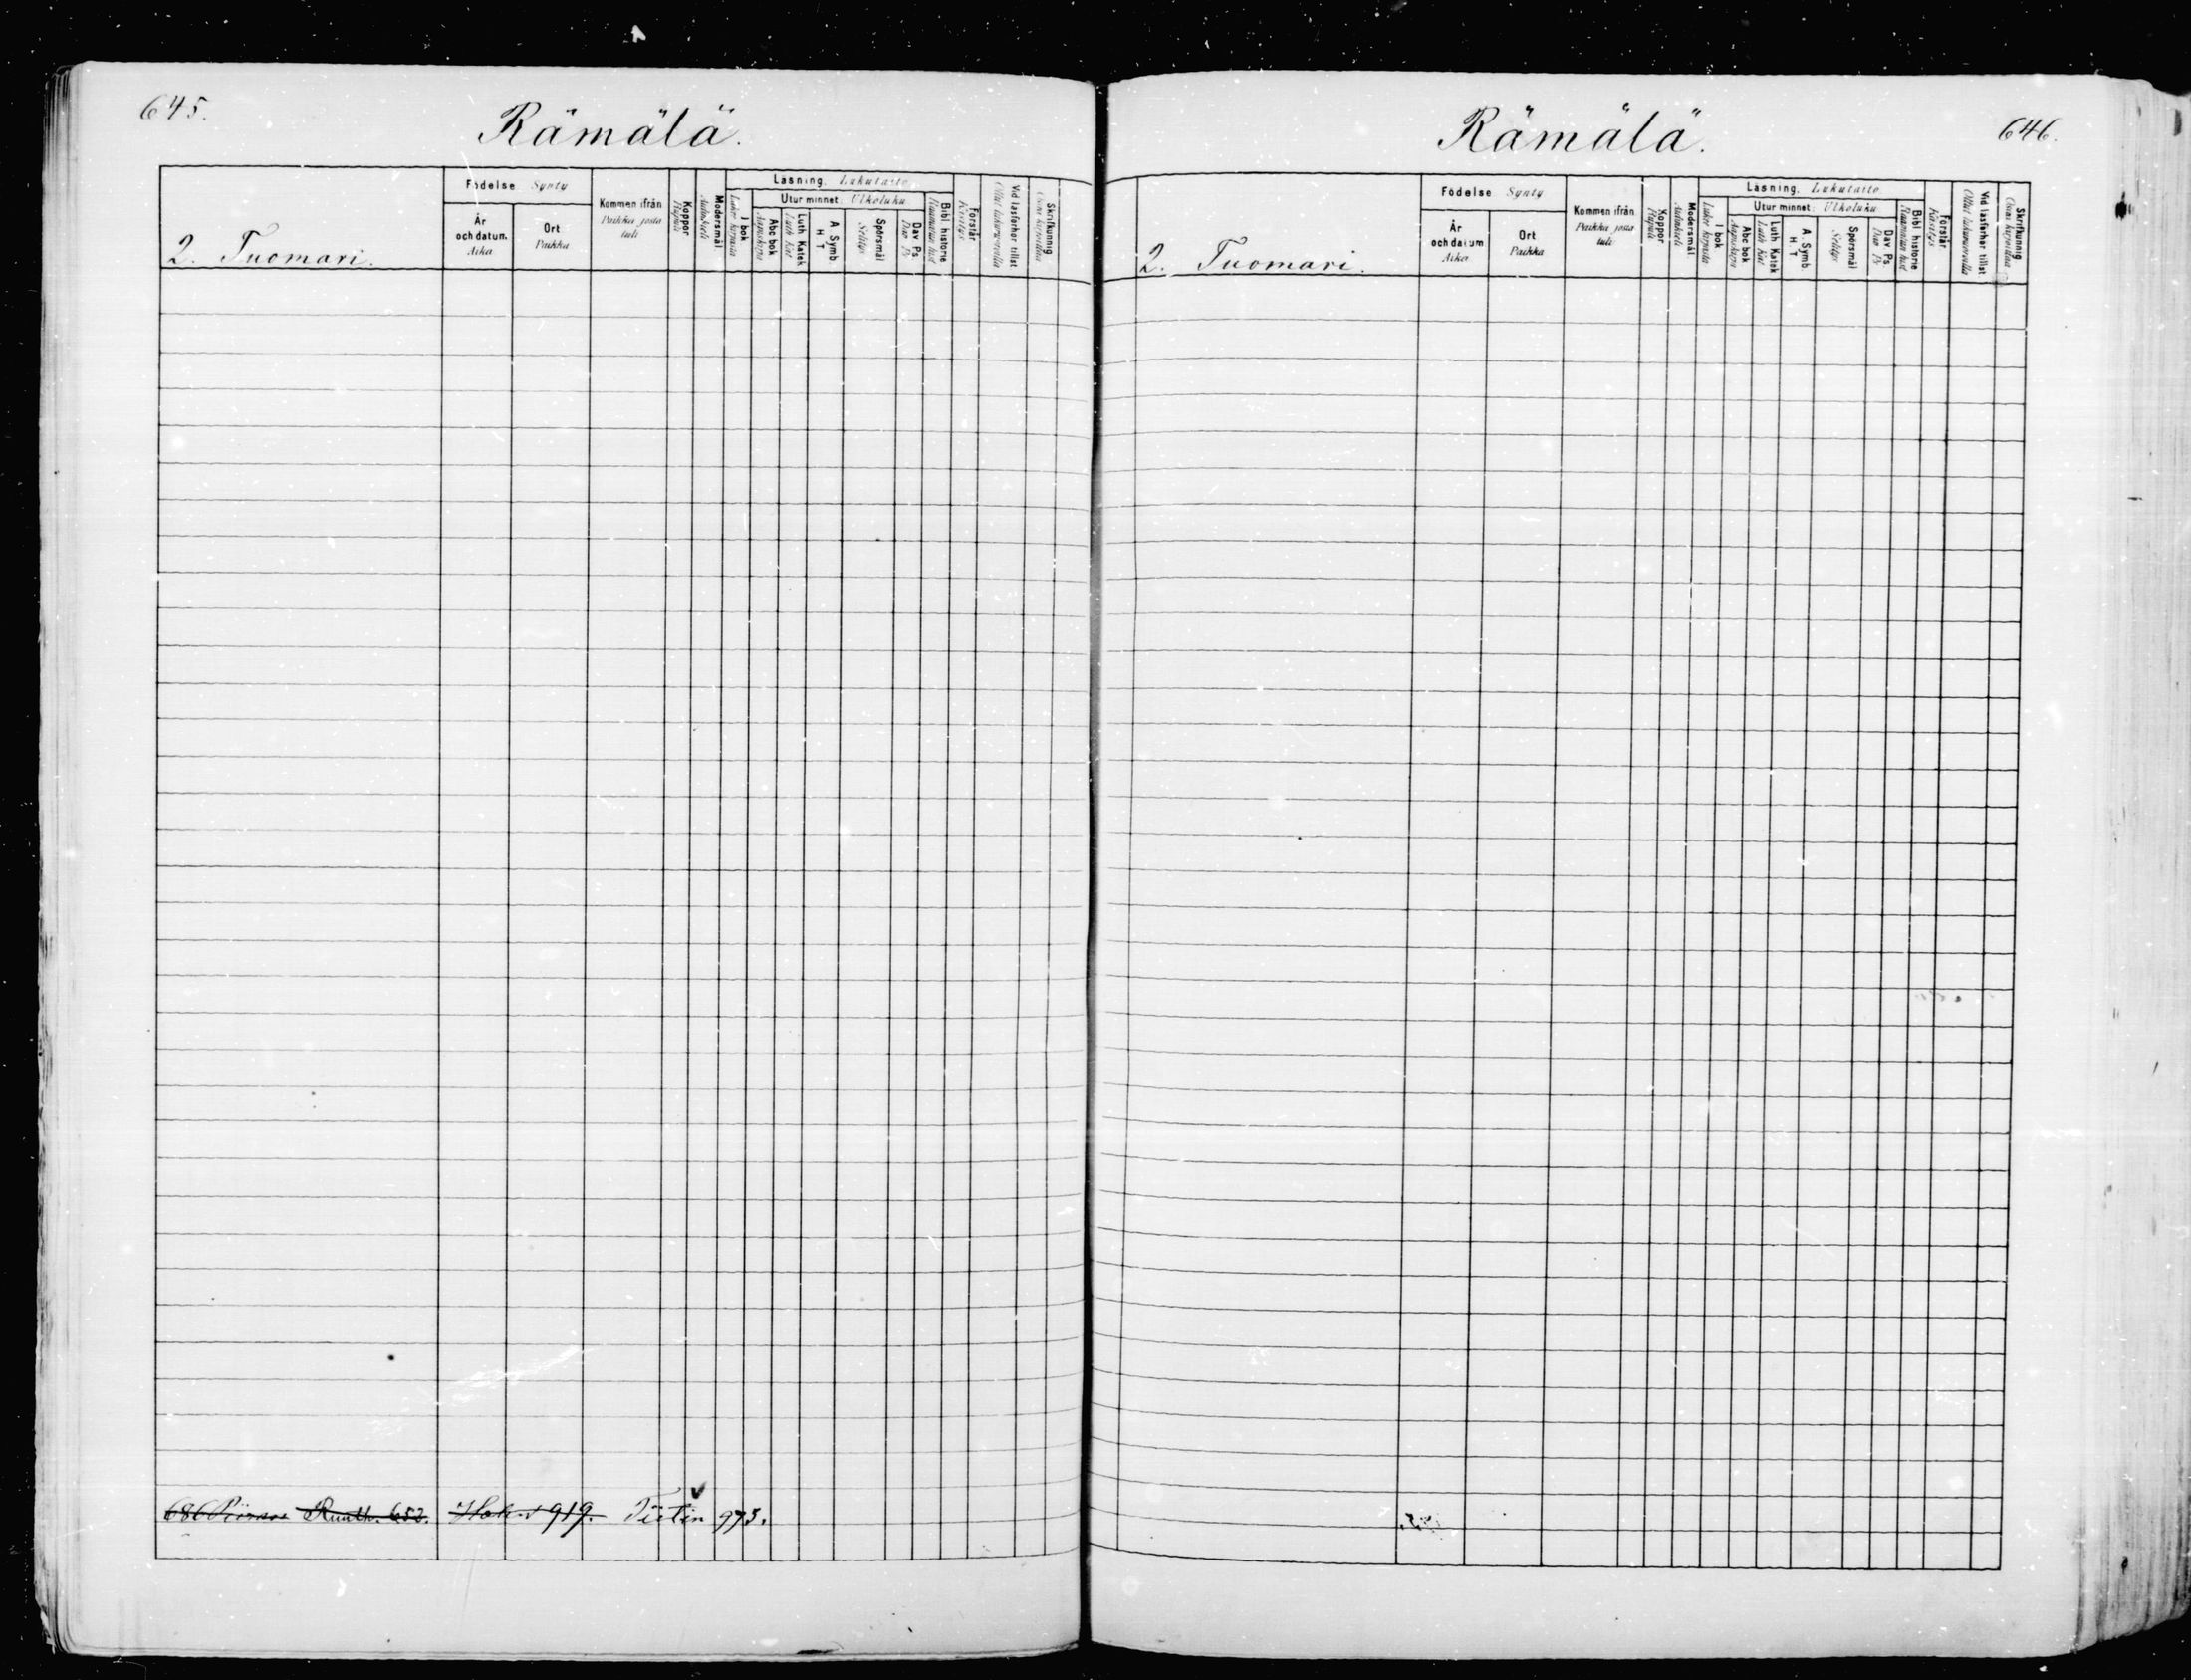 645.
Rämälä.
2. Tuomari.
Födelse Synty
År och datum. Aika
Ort Paikka
Kommen ifrån Paikka josta tuli
Koppor Rupuli
Modersmål Äidinkieli
Läsning. Lukutaito
I bok Lukee kirjasta
Utur minnet: Ulkoluku
Abc bok Aapiskirja
Luth Katek Luth Kat
A. Symb. H T
Spörsmål Selitys
Dav Ps Dav Ps
Bibl. historie Raamatun hist
Förstår Käsitys
Vid läsförhör tillst Ollut lukukinkereillä
Skrifkunnig Osaa kirjoittaa
686 Runth. 652. 919. Tietin 973.
646.
Rämälä.
2. Tuomari.
Födelse Synty
År och datum Aika
Ort Paikka
Kommen ifrån Paikka josta tuli
Koppor Rupuli
Modersmål Äidinkieli
Läsning. Lukutaito
I bok Lukee kirjasta
Utur minnet: Ulkoluku
Abc bok Aapiskirja
Luth Katek Luth Kat
A. Symb H T
Spörsmål Selitys
Dav Ps Dav Ps
Bibl historie Raamatun hist
Förstår Käsitys
Vid läsförhör tillst
Skrifkunnig Osaa kirjoittaa